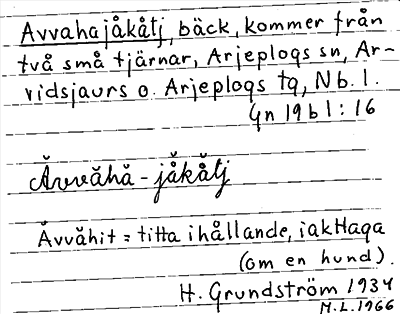 Avvahajåkåtj, bäck, kommer från
två små tjärnar, Arjeplogs sn, Ar-
vidsjaurs o. Arjeplogs tg, Nb. l.
Gn 19 b l : 16
Ăvvăhă - jåkåtj
Ăvvăhit = titta ihållande, iakttaga
(om en hund).
H. Grundström 1934
M.L. 1966